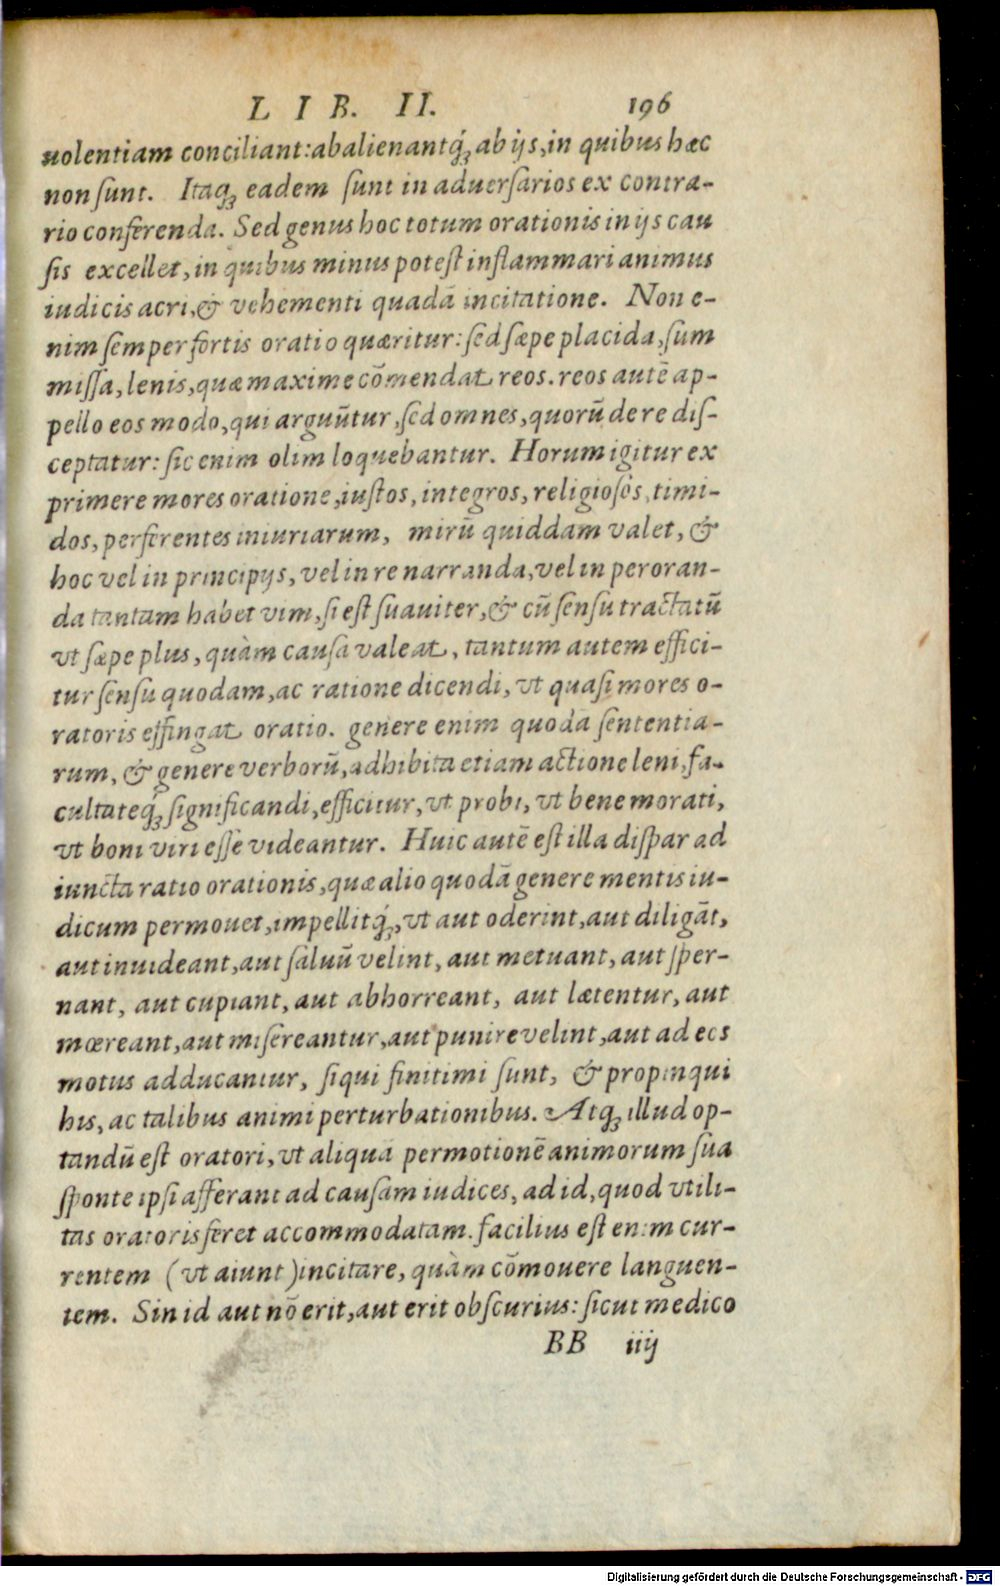 LIB. II. 196
uolentiam conciliant: abalienantq́ꝫ ab ijs, in quibus hæc
non sunt. Itaqꝫ eadem sunt in aduersarios ex contra-
rio conferenda. Sed genus hoc totum orationis in ijs cau
sis excellet, in quibus minus potest inflammari animus
iudicis acri, & vehementi quadā incitatione. Non e-
nim semper fortis oratio quæritur: sed sæpe placida, sum
missa, lenis, quæ maxime cōmendat reos. reos autē ap-
pello eos modo, qui arguūtur, sed omnes, quorū de re dis-
ceptatur: sic enim olim loquebantur. Horum igitur ex
primere mores oratione, iustos, integros, religiosos, timi-
dos, perferentes iniuriarum, mirū quiddam valet, &
hoc vel in principijs, vel in re narranda, vel in peroran-
da tantam habet vim, si est suauiter, & cū sensu tractatū
vt sæpe plus, quàm causa valeat, tantum autem effici-
tur sensu quodam, ac ratione dicendi, vt quasi mores o-
ratoris effingat oratio. genere enim quodā sententia-
rum, & genere verborū, adhibita etiam actione leni, fa-
cultateq́ꝫ significandi, efficitur, vt probi, vt bene morati,
vt boni viri esse videantur. Huic autē est illa dispar ad
iuncta ratio orationis, quæ alio quodā genere mentis iu-
dicum permouet, impellitq́ꝫ, vt aut oderint, aut diligāt,
aut inuideant, aut saluū velint, aut metuant, aut sper-
nant, aut cupiant, aut abhorreant, aut lætentur, aut
mœreant, aut misereantur, aut punire velint, aut ad eos
motus adducantur, siqui finitimi sunt, & propinqui
his, ac talibus animi perturbationibus. Atqꝫ illud op-
tandū est oratori, vt aliquā permotionē animorum sua
sponte ipsi afferant ad causam iudices, ad id, quod vtili-
tas oratoris feret accommodatam. facilius est enim cur-
rentem (vt aiunt) incitare, quàm cōmouere languen-
tem. Sin id aut nō erit, aut erit obscurius: sicut medico
BB iiij
Digitalisierung gefördert durch die Deutsche Forschungsgemeinschaft - DFG